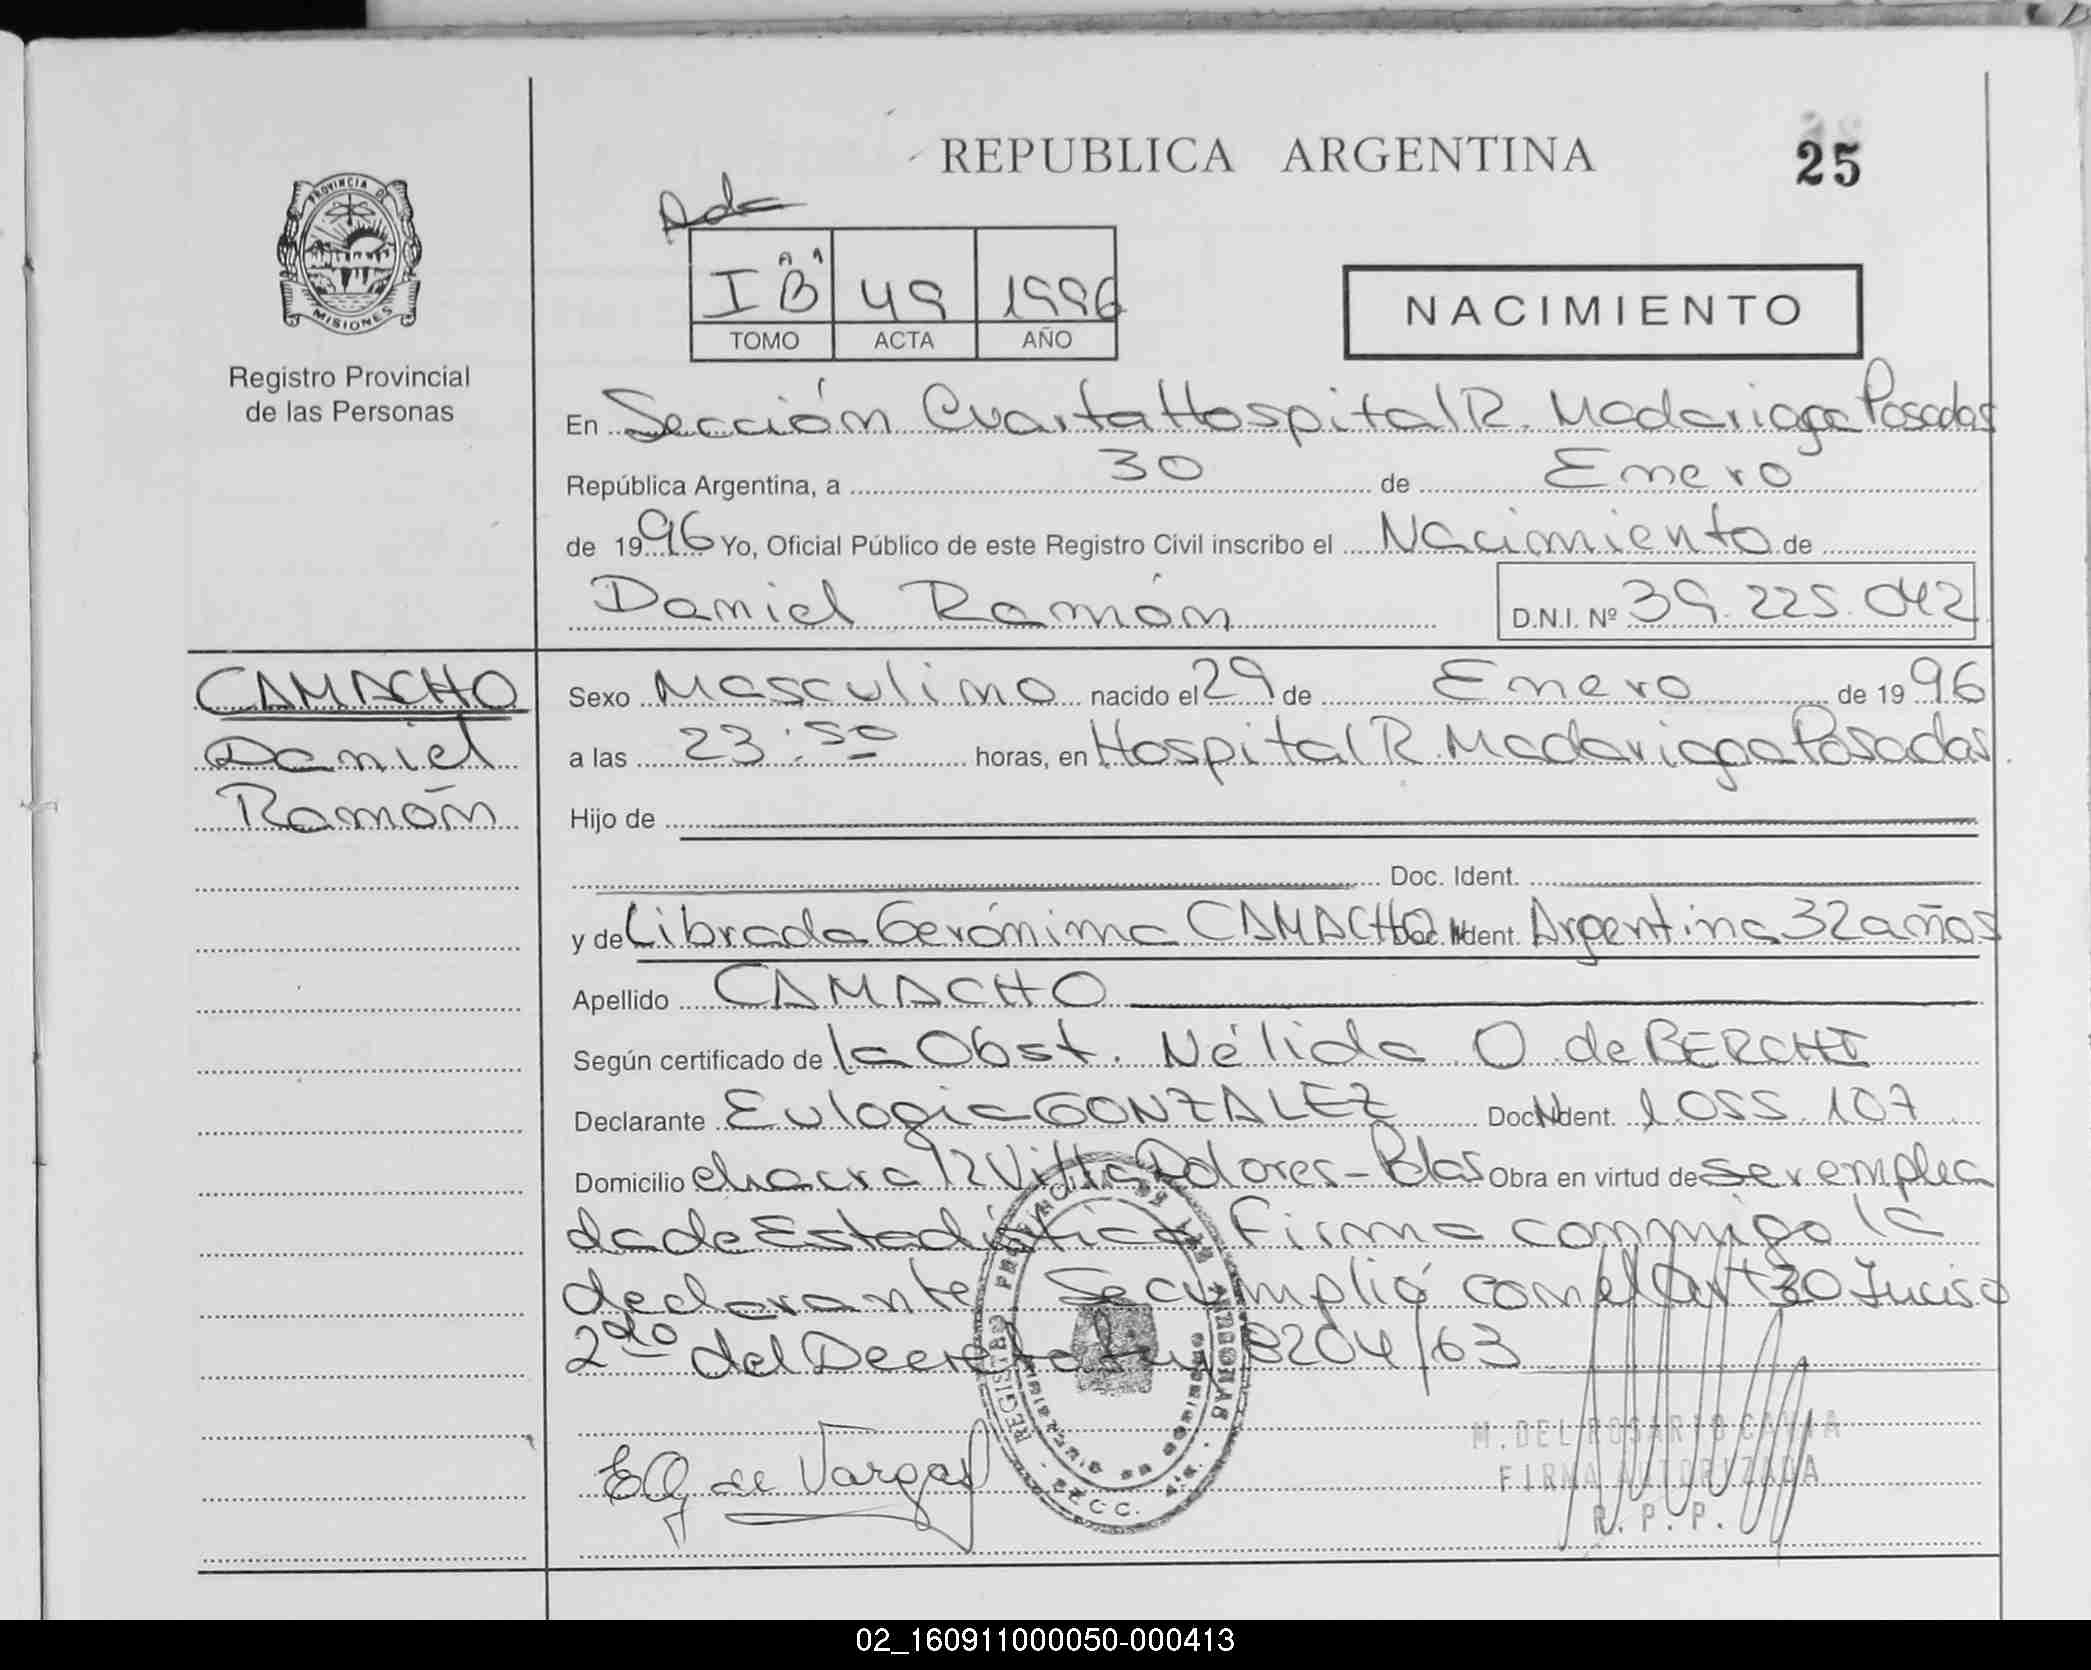 REPUBLICA ARGENTINA
25
PROVINCIA DE
MISIONES
Registro Provincial
de las Personas
I B 49 1996
TOMO ACTA AÑO
NACIMIENTO
En Sección Cuarta Hospital R. Madariaga Posadas
República Argentina, a 30 de Enero
de 1996 Yo, Oficial Público de este Registro Civil inscribo el Nacimiento de
Daniel Ramón D.N.I. Nº 39.225.042
CAMACHO
Daniel
Ramón
Sexo Masculino nacido el 29 de Enero de 1996
a las 23:50 horas, en Hospital R. Madariaga Posadas.
Hijo de
Doc. Ident.
y de Librada Gerónima CAMACHO Doc. Ident. Argentina 32 años
Apellido CAMACHO
Según certificado de la Obst. Nélida O de BERCHI
Declarante Eulogia GONZALEZ Doc. Ident. 1.055.107
Domicilio chacra 12 Villa Dolores - Pdas Obra en virtud de ser emplea
da de Estadística Firma conmigo la
declarante Se cumplió con el Art 30 Inciso
2do del Decreto Ley 8204/63
EG de Vargas
REGISTRO PROVINCIAL DE LAS PERSONAS
SECC.
M. DEL ROSARIO
FIRMA AUTORIZADA
R. P. P.
02_160911000050-000413